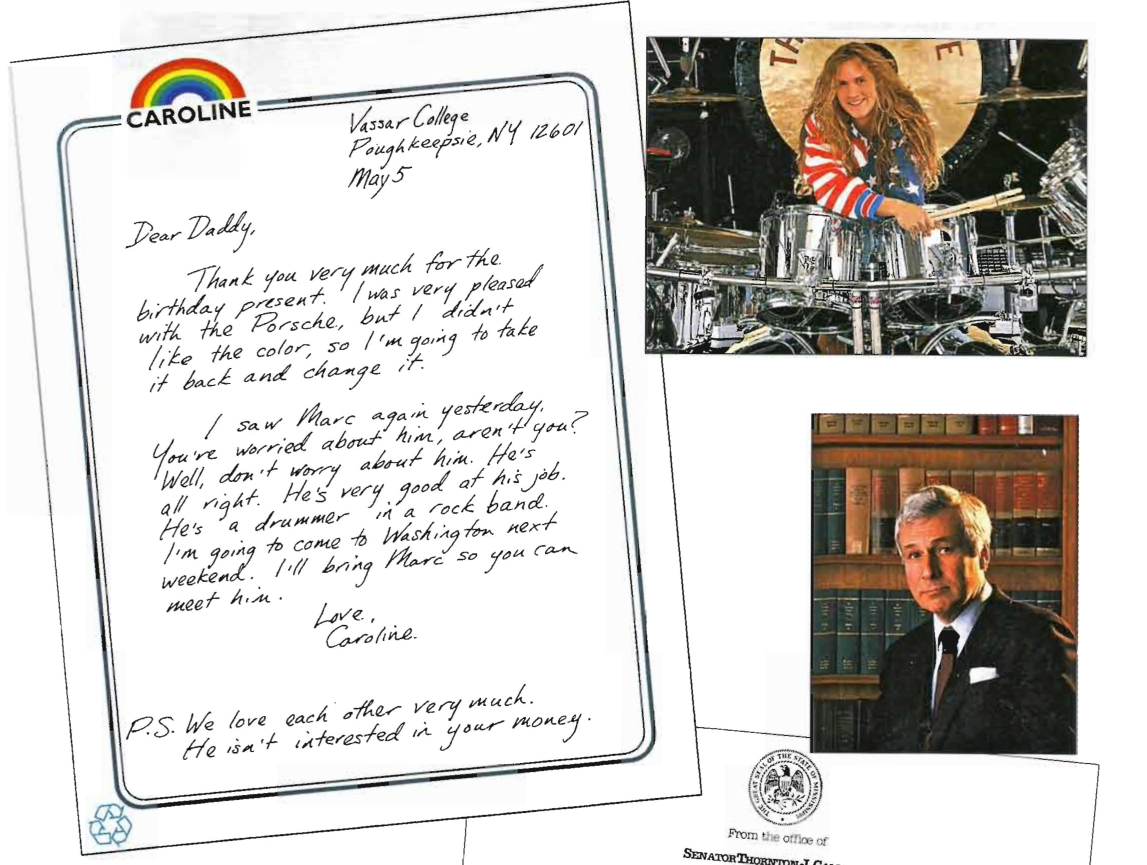 CAROLINE
Vassar College
Poughkeepsie, NY 12601
May 5
Dear Daddy,
Thank you very much for the
birthday present. I was very pleased
with the Porsche, but I didn't
like the color, so I'm going to take
it back and change it.
I saw Marc again yesterday.
You're worried about him, aren't you?
Well, don't worry about him. He's
all right. He's very good at his job.
He's a drummer in a rock band.
I'm going to come to Washington next
weekend. I'll bring Marc so you can
meet him.
Love,
Caroline.
P.S. We love each other very much.
He isn't interested in your money.
THE GREAT SEAL OF THE STATE OF MISSISSIPPI
From the office of
SENATOR THORNTON J.